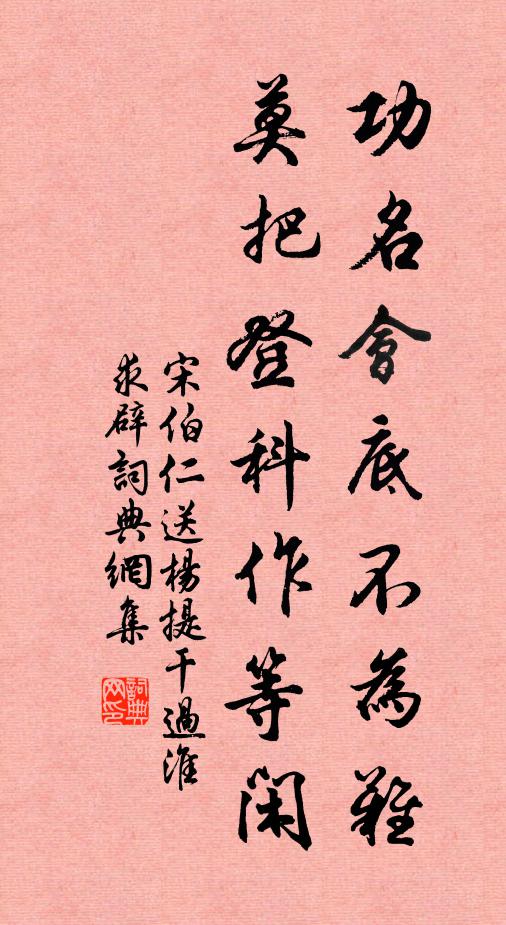 功名會底不為難
莫把登科作等閑
宋伯仁送楊提干過淮
求辟詞典網集
詞典网印